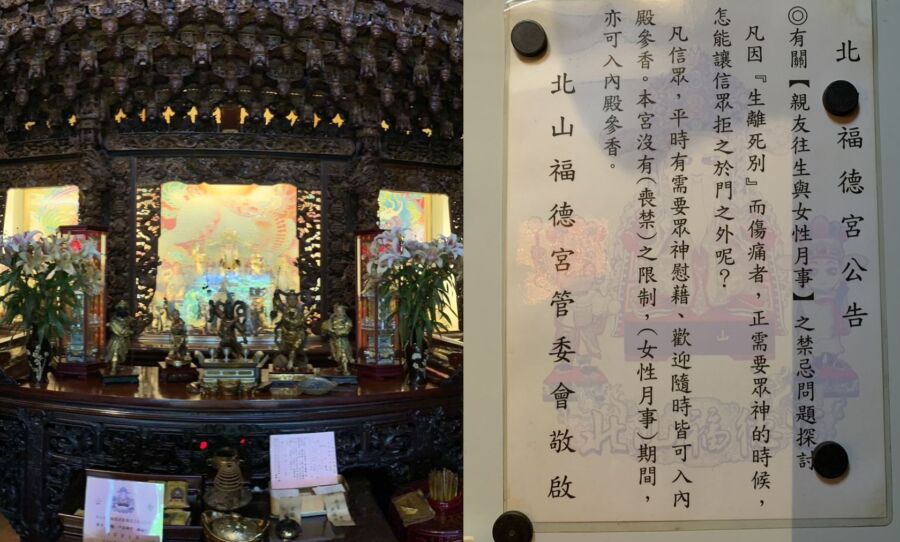 北山福德宮公告
◎有關【親友往生與女性月事】之禁忌問題探討
凡因『生離死別』而傷痛者，正需要眾神的時候，
怎能讓信眾拒之於門之外呢？
凡信眾，平時有需要眾神慰藉、歡迎隨時皆可入內
殿參香。本宮沒有(喪禁)之限制，(女性月事)期間，
亦可入內殿參香。
北山福德宮管委會敬啟
山
北山福德